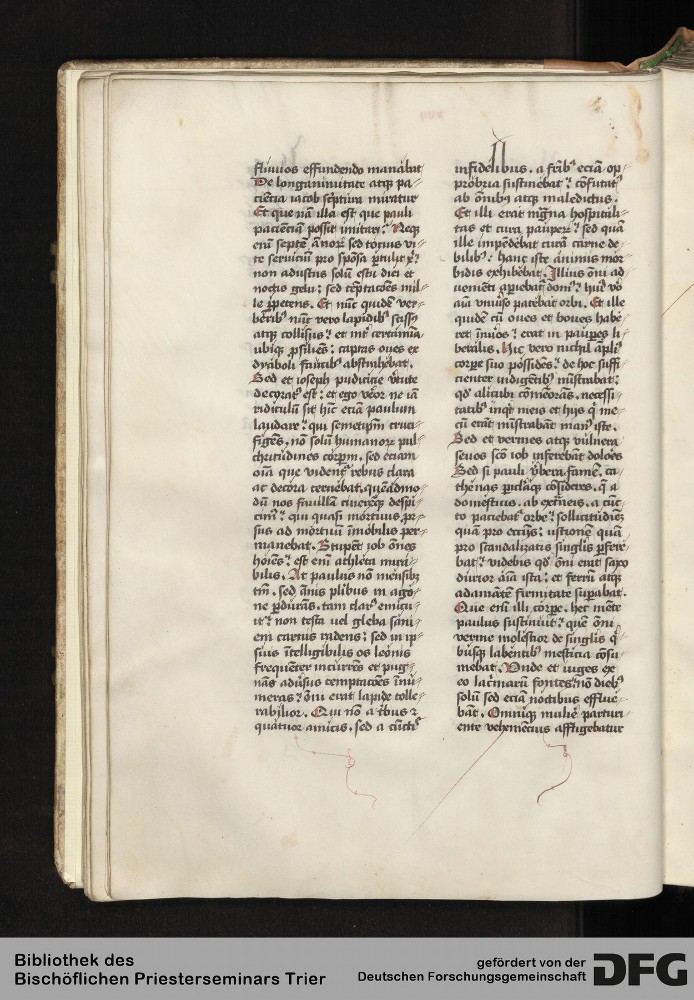 fluuios effundendo manabat
De longanimitate atqꝫ pa⸗
ciẽcia iacob scͥptura miratur
Et que nã illa est que pauli
pacienciã possit imitari? Neqꝫ
eni septẽ ãnorꝝ sed tocius vi⸗
te seruiciũ pro spõsa ꝑtulit xp̃i
non adustus solũ estu diei et
noctis gelu; sed tẽptacões mil⸗
le ꝑpetens. Et nũc quidẽ ver⸗
beribꝰ nũc vero lapidibꝰ
atqꝫ collisus; et int̃ certamina
ubiqꝫ ꝓsiliẽs; captas oues ex
dyaboli faucibꝰ abstrahebat.
Sed et ioseph pudicicie v̾tute
decoratꝰ est; et ego v̾eor ne iã
ridiculũ sit hũc eciã paulum
laudare; qui semetipm̃ cruci⸗
figẽs, nõ solũ humanorꝝ pul⸗
chritudines corpꝝm, sed eciam
oĩa que vident᷑ rebus clara
ac decora cernebat, quẽadmo⸗
dũ nos fauillã cinerẽqꝫ despi⸗
cimꝰ; qui quasi mortuus ꝓr⸗
sus ad mortuũ ĩmobilis per⸗
manebat. Stupẽt iob õnes
hoĩes; est eni athleta mira⸗
bilis. At paulus nõ mensibꝫ
tm̃, sed ãnis plibus in ago⸗
ne ꝑdurãs, tam clarꝰ emicu⸗
it; non testa vel gleba sani⸗
em carnis radens; sed in ip⸗
sius ĩtelligibilis os leonis
frequẽter incurrẽs et pug⸗
nãs adũsus temptacões ĩnu⸗
meras; õni erat lapide tolle⸗
rabilior. Qui nõ a t̾bus ⁊
quatuor amicis, sed a cũctꝭ
infidelibus, a frĩbꝰ eciã op⸗
probria sustinebat; cõfutatꝰ
ab õnibꝰ atqꝫ maledictus.
Et illi erat magna hospitali⸗
tas et cura pauperꝝ; sed quã
ille impẽdebat curã carne de⸗
bilibꝰ; hanc iste animis mor⸗
bidis exhibebat. Illius õni ad⸗
uenienti aꝑiebat᷑ domꝰ; huiꝰ vo
aĩa vniuso patebat orbi. Et ille
quidẽ cũ oues et boues habe⸗
ret ĩnuõs; erat in pauperes li⸗
beralis. Hic vero nichil ãpliꝰ
corꝑe suo possidẽs; de hoc suffi⸗
cienter indigẽtibꝰ mĩstrabat;
qđ alicubi cõmẽorãs, necessi⸗
tatibꝰ inqt meis et hijs q̃ me⸗
cũ erãt mĩstrabãt manꝰ iste.
Sed et vermes atqꝫ vulnera
seuos scõ iob inferebãt dolões
Sed si pauli v̾bera, famẽ, ca⸗
thenas ꝑiclaqꝫ cõsideres, q̃ a
domesticis, ab extneis, a cũc⸗
to paciebat᷑ orbe; sollicitudiẽꝫ
quã pro ecc̃ijs; ustionẽ quã
pro scandalizatis singlis ꝑfere⸗
bat; videbis qđ õni erat saxo
durior aĩa ista; et ferrũ atqꝫ
adamãtẽ firmitate supabat.
Que eni illi corꝑe, hec mẽte
paulus sustinuit; que õni
verme molestior de singlis q⸗
busqꝫ labentibꝰ mesticia cõsu⸗
mebat. Vnde et iuges ex
eo lacrimarũ fontes nõ diebꝰ
solũ sed eciã noctibus efflue⸗
bãt. Omniqꝫ muliẽ parturi⸗
ente vehemẽcius affligebatur
Bibliothek des
Bischöflichen Priesterseminars Trier
gefördert von der
Deutschen Forschungsgemeinschaft
DFG